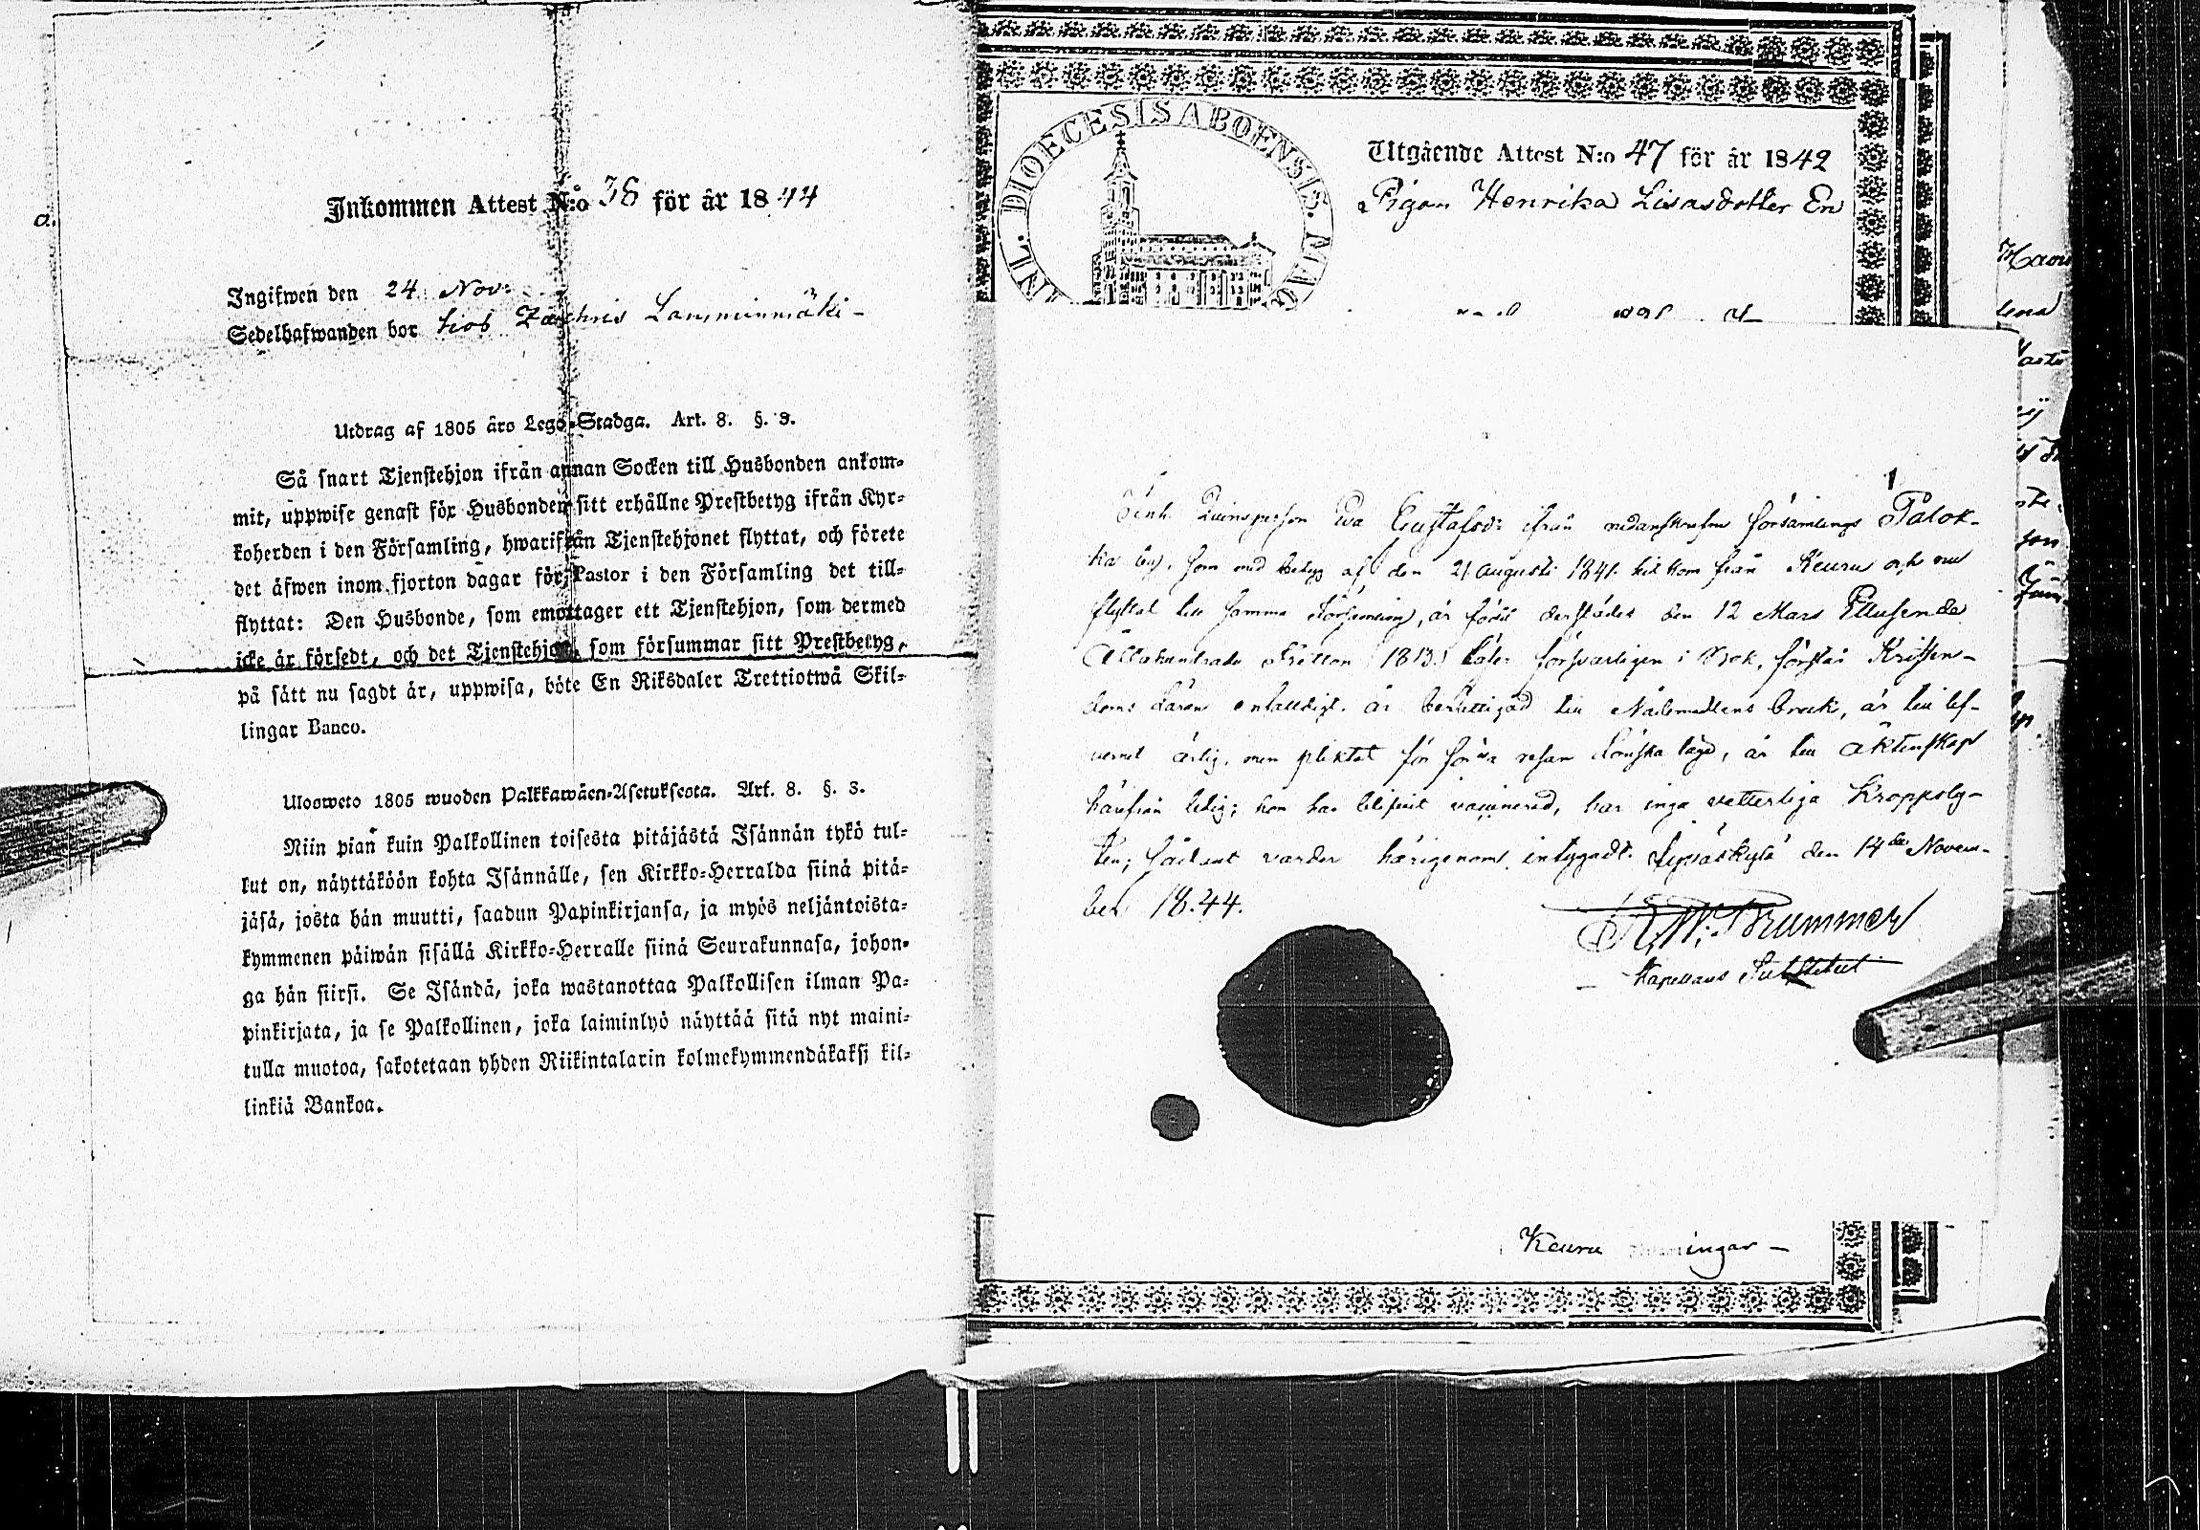 a.
Inkommen Attest N:o 38 för år 1844
Ingifwen den 24 Nov:
Sedelhafwanden bor hos Zachris Lamminmäki -
Utdrag af 1805 åro Lego-Stadga. Art. 8. §. 3.
Så snart Tjenstehjon ifrån annan Socken till Husbonden ankom-
mit, uppwise genast för Husbonden sitt erhållne Prestbetyg ifrån Kyr-
koherden i den Församling, hwarifrån Tjenstehjonet flyttat, och förete
det äfwen inom fjorton dagar för Pastor i den Församling det till-
flyttat: Den Husbonde, som emottager ett Tjenstehjon, som dermed
icke är försedt, och det Tjenstehjon, som försummar sitt Prestbetyg,
på sätt nu sagdt är, uppwisa, böte En Riksdaler Trettiotwå Skil-
lingar Banco.
Ulosweto 1805 wuoden Palkkawäen-Asetuksesta. Art. 8. §. 3.
Niin pian kuin Palkollinen toisesta pitäjästä Isännän tykö tul-
lut on, näyttäköön kohta Isännälle, sen Kirkko-Herralda siinä pitä-
jäsä, josta hän muutti, saadun Papinkirjansa, ja myös neljäntoista-
kymmenen päiwän sisällä Kirkko-Herralle siinä Seurakunnasa, johon-
ga hän siirsi. Se Isändä, joka wastanottaa Palkollisen ilman Pa-
pinkirjata, ja se Palkollinen, joka laiminlyö näyttää sitä nyt maini-
tulla muotoa, sakotetaan yhden Riikintalarin kolmekymmendäkaksi kil-
linkiä Bankoa.
DIOECESIS ABOENSIS. MAG
Utgående Attest N:o 47 för år 1842
Pigan Henrika Lisasdotter En
Qvinsperson Eva Gustafsd: ifrån nedanskrefne församlings Palok-
ka by, som med betyg af den 21 Augusti 1841 hit kom från Keuru och nu
flyttat till samma Församling, är född derstädes den 12 Mars Ettusende
Åttahundrade Tretton (1813) läser försvarligen i Bok, förstår Kristen-
doms läran enfaldigt, är berättigad till Nådemedlens bruk, är till lef-
vernet ärlig, men pliktat för första resan lönska läge, är till äktenskap
härifrån ledig; hon har blifvit vaccinerad, har inga vetterliga Kroppsly-
ten; sådant varder härigenom intygadt. Jyväskylä den 14de Novem-
ber 1844.
Brummer
Kapellans Substitut
Keuru